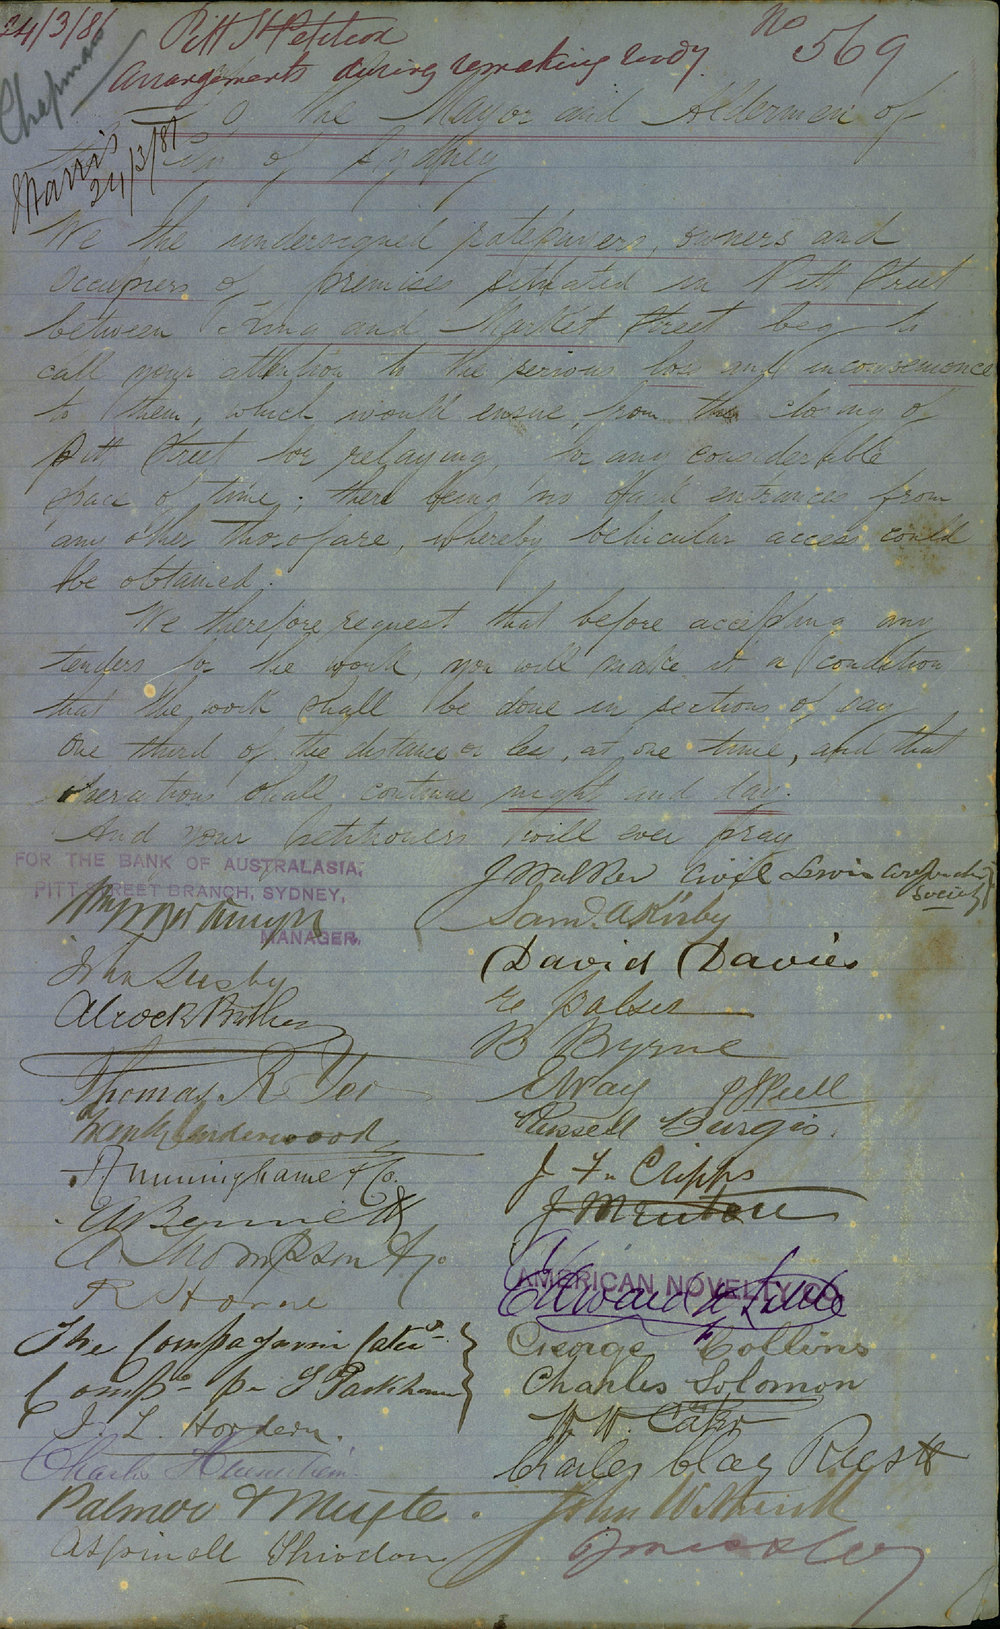 24/3/81
Pitt St Petition
No 569
arrangements during remaking wood
Chapman
To the Mayor and Aldermen of
the City of Sydney
Harris
24/3/81
We the undersigned ratepayers, owners and
Occupiers of premises situated in Pitt Street
between King and Market Street beg to
call your attention to the serious loss and inconvenience
to them, which would ensue, from the closing of
Pitt Street for relaying, for any considerable
space of time; there being no back entrances from
any other thorofare, whereby vehicular access could
be obtained.
We therefore request that before accepting any
tenders for the work, you will make it a condition
that the work shall be done in sections of say
One third of the distance or less, at one time, and that
operations shall continue night and day.
And your petitioners will ever pray
FOR THE BANK OF AUSTRALASIA,
PITT STREET BRANCH, SYDNEY,
MANAGER.
J Walker Civil Service Cooperative
Society
Saml. A Kirby
John Susby
David Davies
Alcock Brothers
B Byrne
Thomas R Yeo
E Way
Frank Underwood
Russell Burgis.
Cunninghame & Co.
J. F. Cripps
Bennett
Thompson & Co.
R Horne
AMERICAN NOVELTY CO.
Edward
The
George Collins
Comp
Charles Solomon
J. L. Hordern.
Charles
Charles Clay
Palmer &
John W
Aspinall
& Co